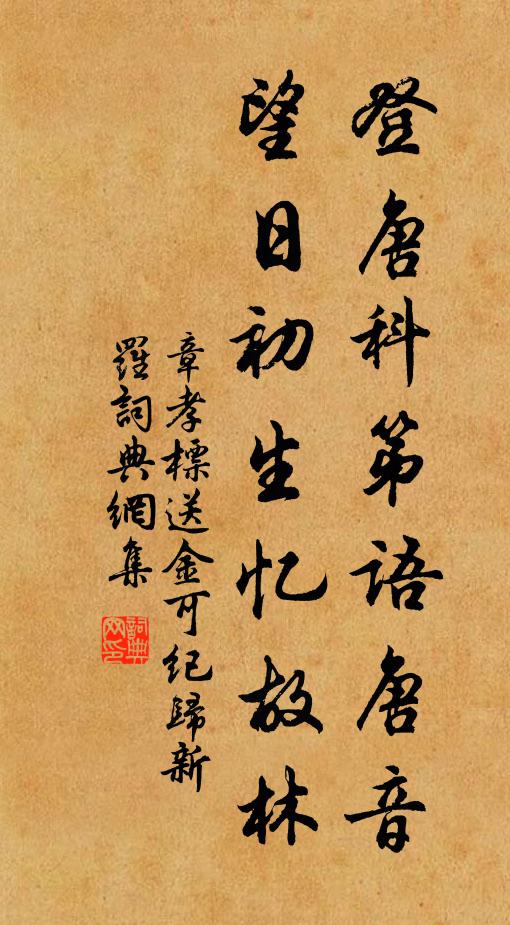 登唐科第語唐音
望日初生忆故林
章孝標送金可紀歸新
羅詞典網集
詞典
网印